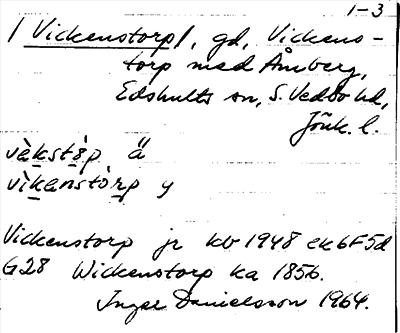 1-3
/ Vickenstorp/, gd, Vickens-
torp med Åmberg,
Edshults sn, S. Vedbo hd,
Jönk. l.
vèkstòp ä
vìkanstòrp y
Vickenstorp jr kb 1948 ek 6F5d
G28 Wickenstorp ka 1856.
Inger Danielsson 1964.